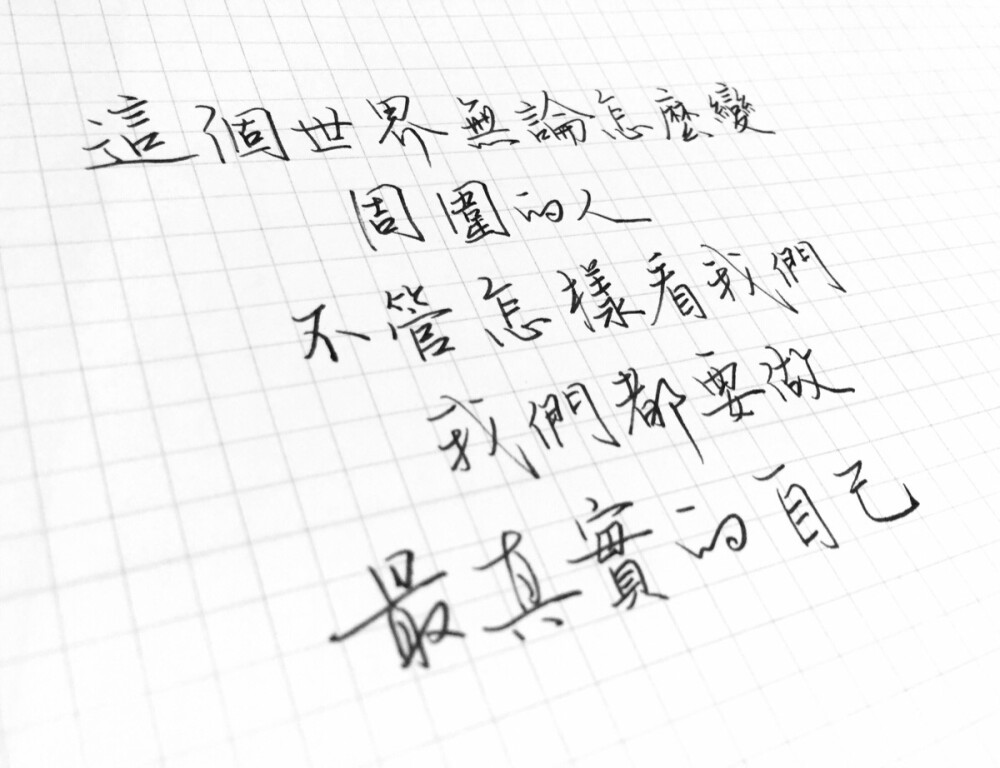 這個世界無論怎麼變
周圍的人
不管怎樣看我們
我們都要做
最真實的自己